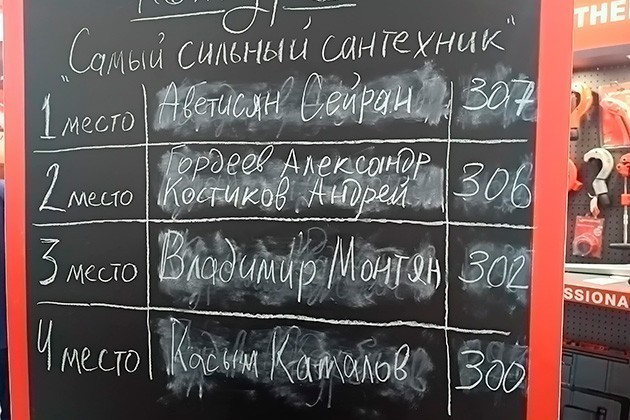 Конкурс
"Самый сильный сантехник"
1 место Аветисян Сейран 307
2 место Гордеев Александр
Костиков Андрей 306
3 место Владимир Монтян 302
4 место Касым Камалов 300
THE
SSIONA